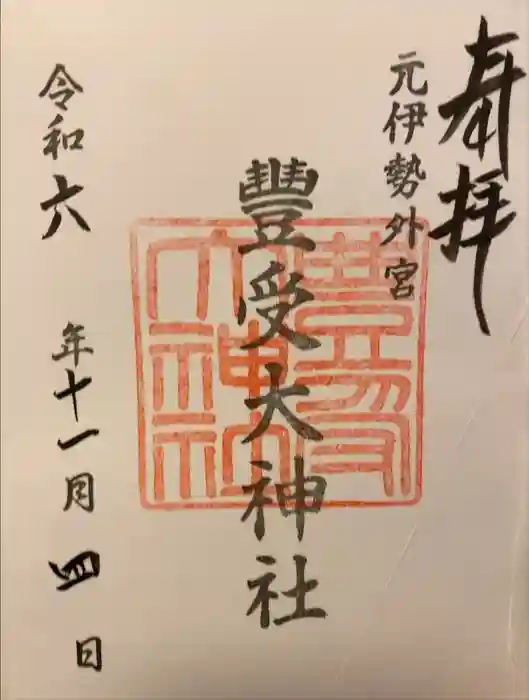 奉拝
元伊勢外宮
豐受大神社
令和六年十一月四日